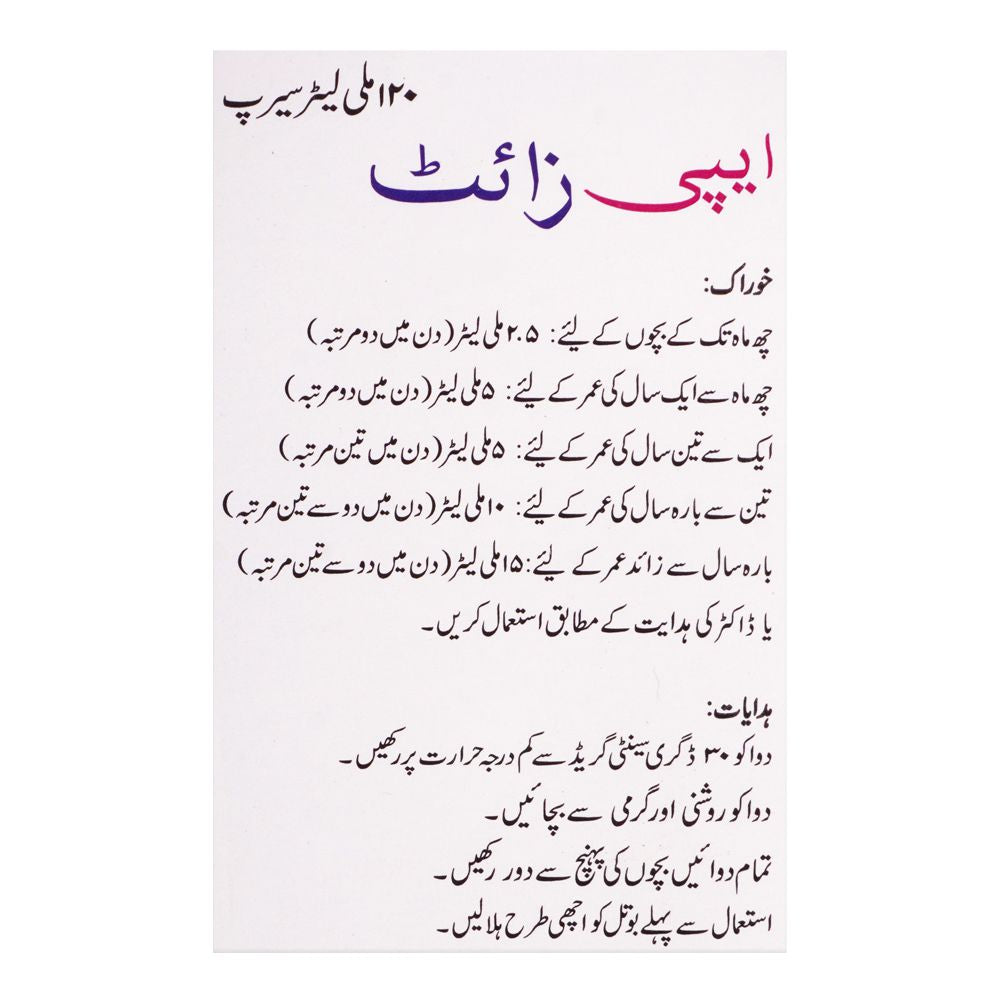 ۱۲۰ ملی لیٹر سیرپ
ایپی زائٹ
خوراک:
چھ ماہ تک کے بچوں کے لیئے: ۲.۵ ملی لیٹر (دن میں دو مرتبہ)
چھ ماہ سے ایک سال کی عمر کے لیئے: ۵ ملی لیٹر (دن میں دو مرتبہ)
ایک سے تین سال کی عمر کے لیئے: ۵ ملی لیٹر (دن میں تین مرتبہ)
تین سے بارہ سال کی عمر کے لیئے: ۱۰ ملی لیٹر (دن میں دو سے تین مرتبہ)
بارہ سال سے زائد عمر کے لیئے: ۱۵ ملی لیٹر (دن میں دو سے تین مرتبہ)
یا ڈاکٹر کی ہدایت کے مطابق استعمال کریں۔
ہدایات:
دوا کو ۳۰ ڈگری سینٹی گریڈ سے کم درجہ حرارت پر رکھیں۔
دوا کو روشنی اور گرمی سے بچائیں۔
تمام دوائیں بچوں کی پہنچ سے دور رکھیں۔
استعمال سے پہلے بوتل کو اچھی طرح ہلا لیں۔